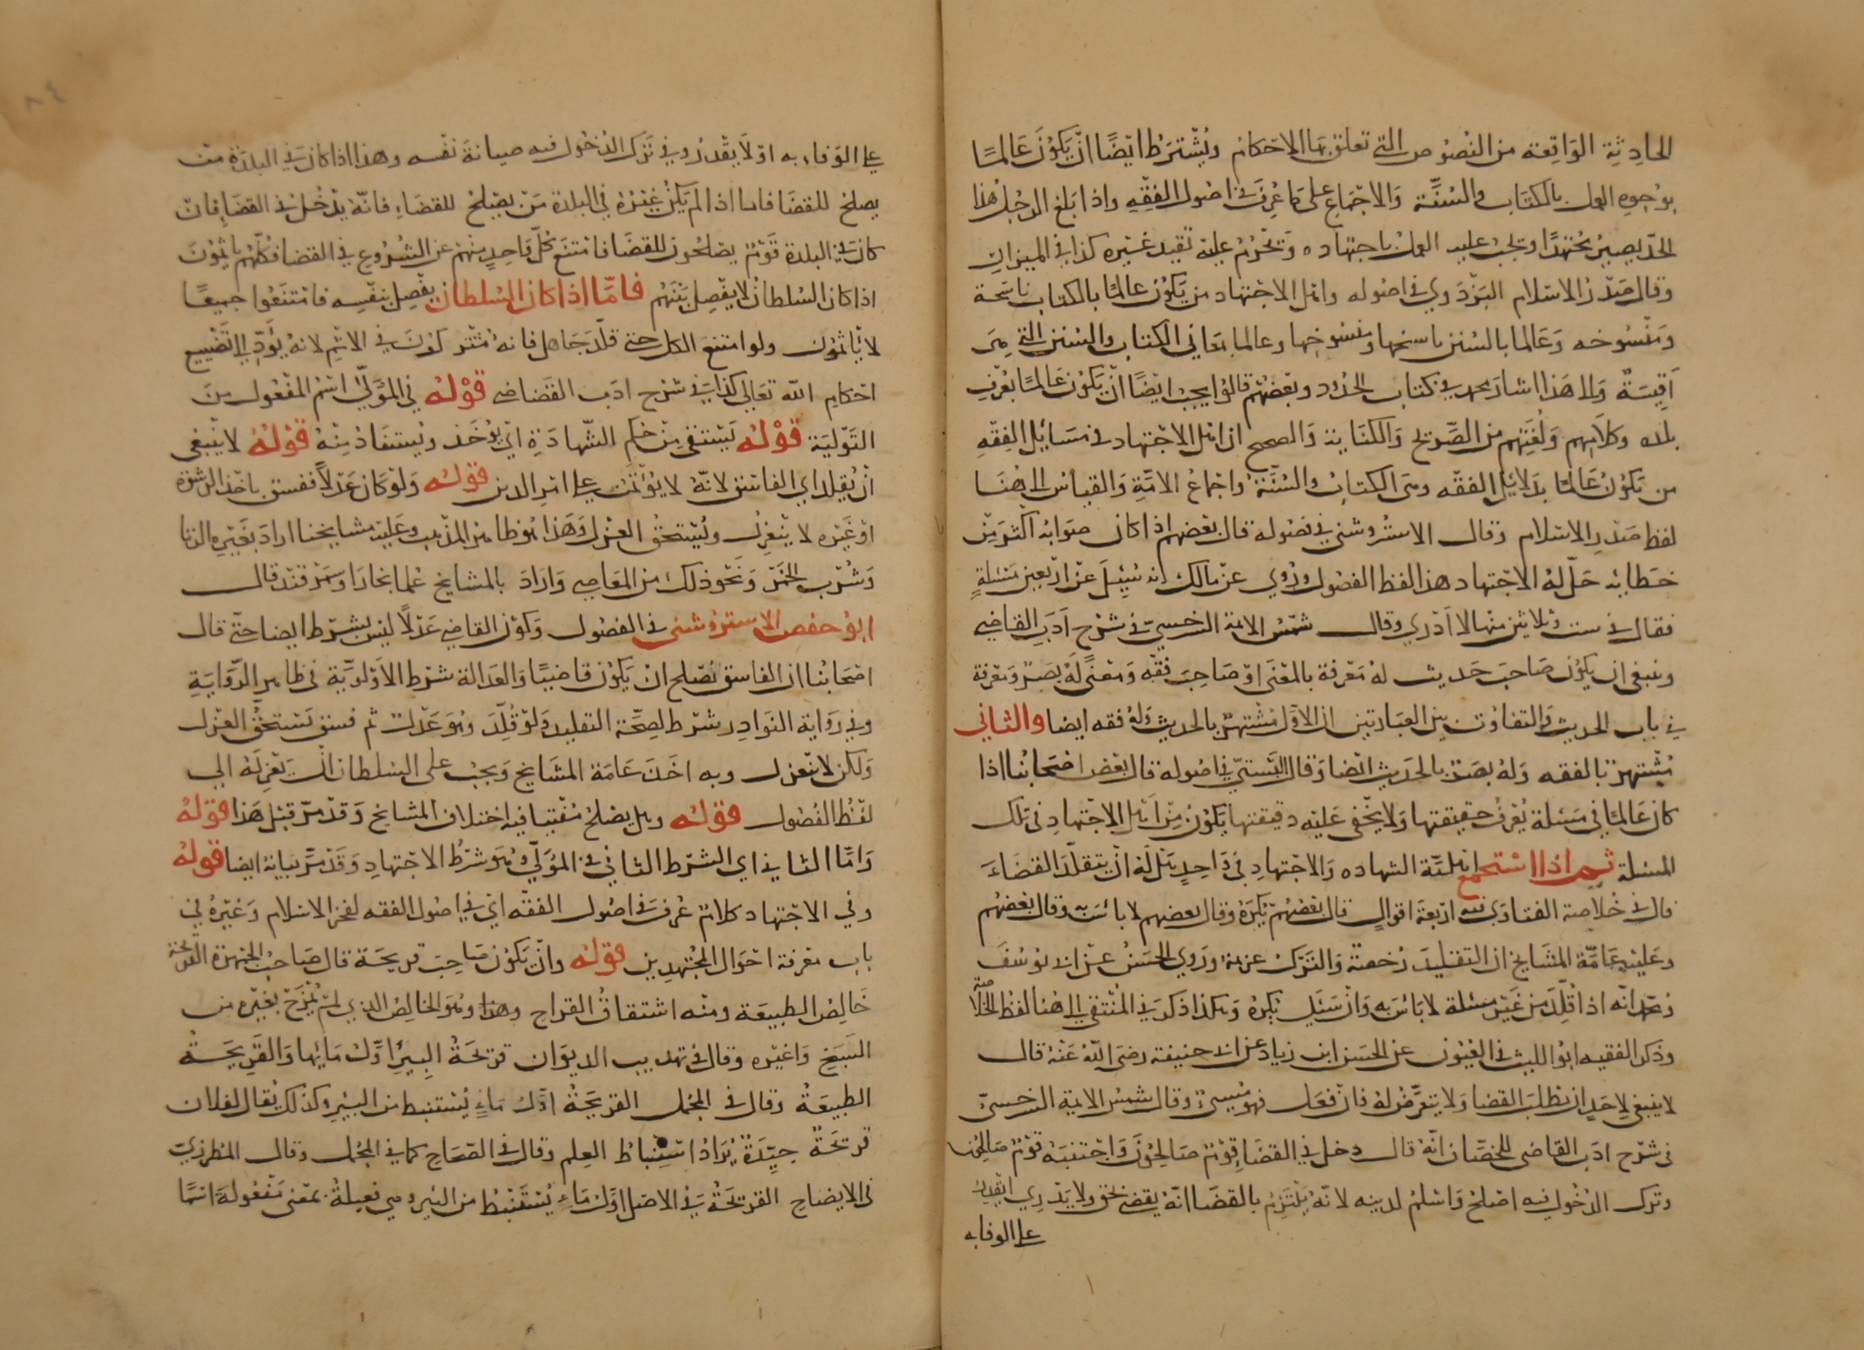 الحادثة الواقعة من النصوص التي تعلق بها الاحكام ويشترط ايضا ان يكون عالما
بوجوه العمل بالكتاب والسنة والاجماع على ما عرف في اصول الفقه واذا بلغ الرجل هذا
الحد يصير مجتهدا ويجب عليه العمل باجتهاده وتحرم عليه تقليد غيره كذا في الميزان
وقال صدر الاسلام البزدوي في اصوله واهل الاجتهاد من يكون عالما بالكتاب ناسخه
ومنسوخه وعالما بالسنن ناسخها ومنسوخها وعالما بمعاني الكتاب والسنن التي هي
اقيسة والى هذا اشار محمد في كتاب الحدود وبعضهم قالوا يجب ايضا ان يكون عالما بعرف
بلده وكلامهم ولغتهم من الصريح والكناية والصحيح ان اهل الاجتهاد في مسائل الفقه
من يكون عالما بدلائل الفقه وهي الكتاب والسنة واجماع الامة والقياس الى هنا
لفظ صدر الاسلام وقال الاستروشني في فصوله قال بعضهم اذا كان صوابه اكثر من
خطائه حل له الاجتهاد هذا لفظ الفصول وروي عن مالك انه سئل عن اربعين مسئلة
فقال في ست وثلاثين منها لا ادري وقال شمس الائمة السرخسي في شرح ادب القاضي
وينبغي ان يكون صاحب حديث له معرفة بالمعنى او صاحب فقه ومعنى له بصر ومعرفة
في باب الحديث والتفاوت بين العبارتين ان الاول مشتهر بالحديث وله فقه ايضا والثاني
مشتهر بالفقه وله بصر بالحديث ايضا وقال البستي في اصوله قال بعض اصحابنا اذا
كان عالما في مسئلة يعرف حقيقتها ولا يخفى عليه دقيقتها يكون من اهل الاجتهاد في تلك
المسئلة ثم اذا استجمع اهلية الشهاده والاجتهاد في واحد هل له ان يتقلد القضاء
قال في خلاصة الفتاوى فيه اربعة اقوال قال بعضهم يكره وقال بعضهم لا باس به وقال بعضهم
وعليه عامة المشايخ ان التقليد رخصة والترك عزيمة وروي الحسن عن ابي يوسف
ومحمد انه اذا قلد من غير مسئلة لا باس به وان سئل يكره وهكذا ذكر في المنتقى الى هنا لفظ الخلاصة
وذكر الفقيه ابو الليث في العيون عن الحسن ابن زياد عن ابي حنيفة رضي الله عنه قال
لا ينبغي لاحد ان يطلب القضا ولا يتعرض له فان فعل فهو مسيء وقال شمس الائمة السرخسي
في شرح ادب القاضي للخصاف انه قال دخل في القضاء قوم صالحون واجتنبه قوم صالحون
وترك الدخول فيه اصلح واسلم لدينه لانه يلتزم بالقضا انه يقضي بحق ولا يدري ايقدر
على الوفا به
على الوفاء به او لا يقدر وفي ترك الدخول فيه صيانة نفسه وهذا اذا كان في البلدة من
يصلح للقضا فاما اذا لم يكن غيره في البلدة من يصلح للقضاء فانه يدخل في القضا فان
كان في البلدة قوم يصلحون للقضا فامتنع كل واحد منهم عن الشروع في القضا فكلهم ياثمون
اذا كان السلطان لا يفصل بينهم فاما اذا كان السلطان يفصل بنفسه فامتنعوا جميعا
لا ياثمون ولو امتنع الكل حتى قلد جاهل فانه مشتركون في الاثم لانه يؤدي الى تضييع
احكام الله تعالى كذا في شرح ادب القضاضي قوله في المولى اسم المفعول من
التولية قوله يستقى من حكم الشهادة اي يؤخذ ويستفاد منه قوله لا ينبغي
ان يقلد اي الفاسق لانه لا يؤتمن على امر الدين قوله ولو كان عدلا ففسق باخذ الرشوة
او غيره لا ينعزل ويستحق العزل وهذا هو ظاهر المذهب وعليه مشايخنا اراد بغيره الزنا
وشرب الخمر ونحو ذلك من المعاصي واراد بالمشايخ علما بخارا وسمرقند قال
ابو حفص الاستروشني في الفصول وكون القاضي عدلا ليس بشرط ايضا حتى قال
اصحابنا ان الفاسق يصلح ان يكون قاضيا والعدالة شرط الاولوية في ظاهر الرواية
وفي رواية النوادر شرط لصحة التقليد ولو قلد وهو عدل ثم فسق يستحق العزل
ولكن لا ينعزل وبه اخذ عامة المشايخ ويجب على السلطان ان يعزله الى
لفظ الفصول قوله وهل يصلح مفتيا فيه اختلاف المشايخ وقد مر قبل هذا قوله
واما الثاني اي الشرط الثاني في المولى هو شرط الاجتهاد وقد مر بيانه ايضا قوله
وفي الاجتهاد كلام عرف في اصول الفقه اي في اصول الفقه لفخر الاسلام وغيره في
باب معرفة احوال المجتهدين قوله وان يكون صاحب قريحة قال صاحب الجمهرة القريحة
خالص الطبيعة ومنه اشتقاق القراح وهذا وهو الخالص الذي لم يمزج بغيره من
السبخ واغيره وقال في تهذيب الديوان قريحة البير اول مائها والقريحة
الطبيعة وقال في المجمل القريحة اول ماء يستنبط من البير وكذلك يقال لفلان
قريحة جيدة يراد استنباط العلم وقال في الصحاح كما في المجمل وقال المطرزي
في الايضاح القريحة في الاصل اول ماء يستنبط من البير وهي فعيلة بمعنى مفعولة انما